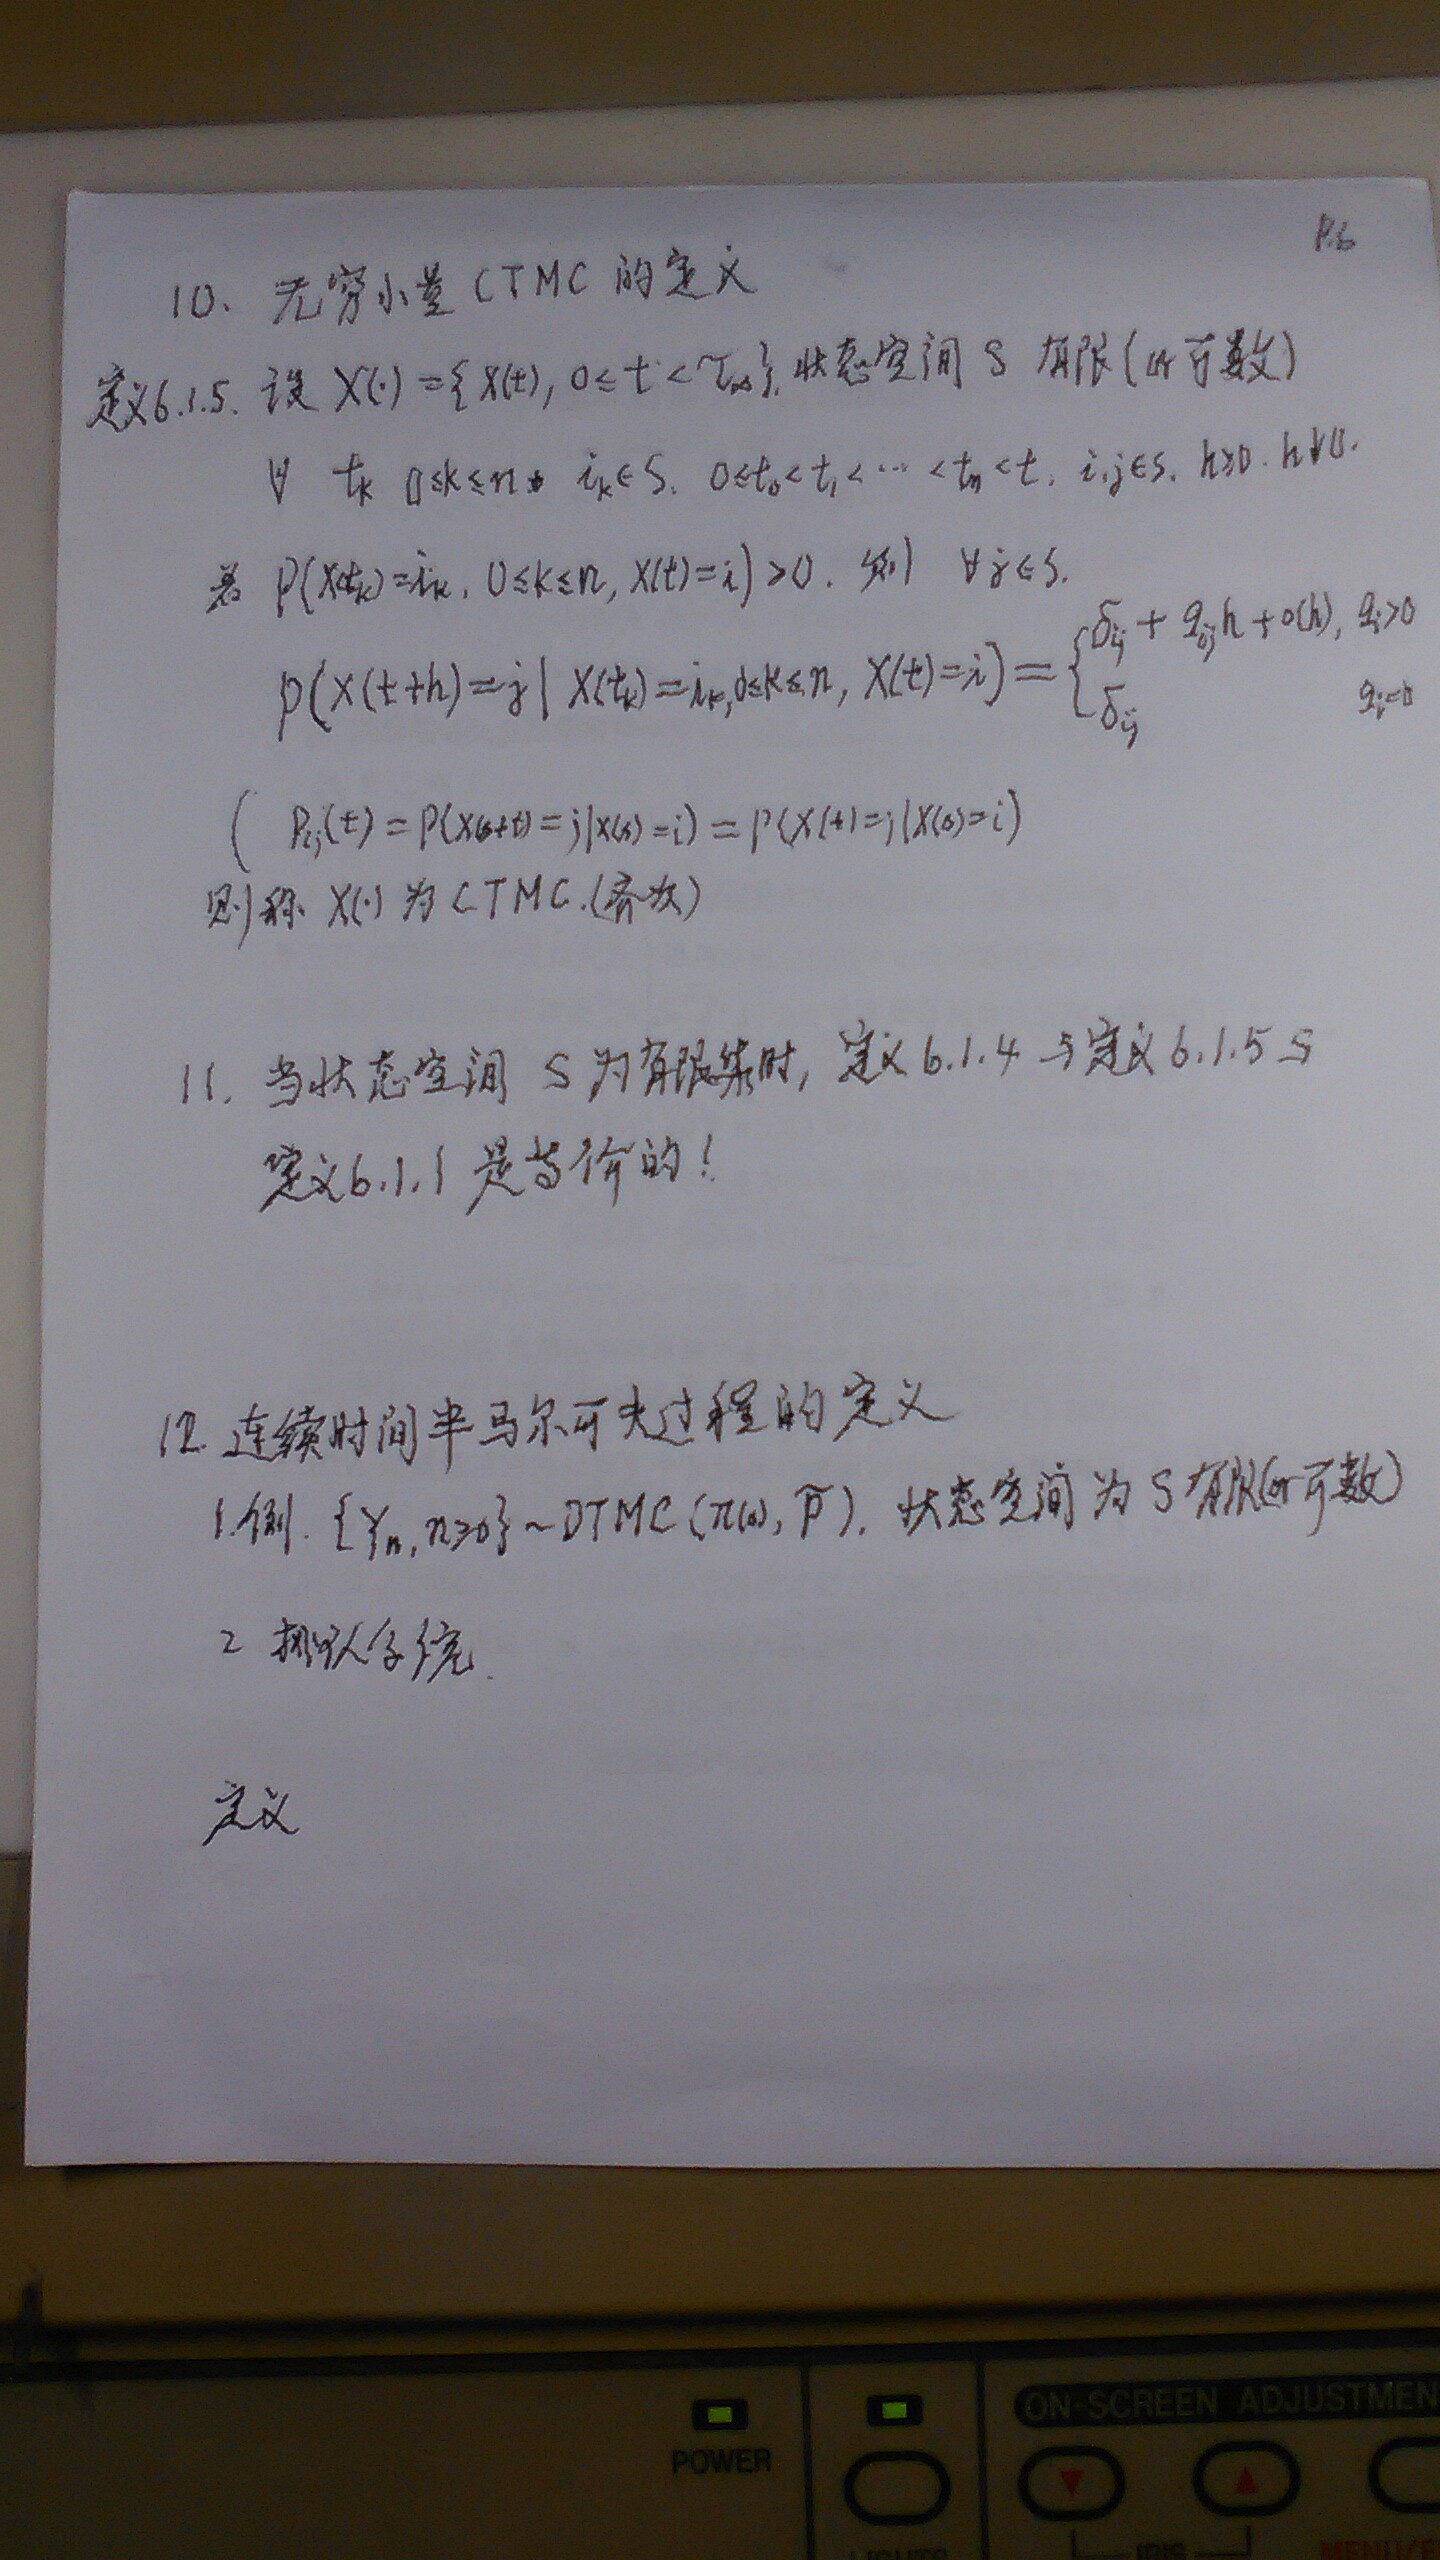 P.6
10. 无穷小量 CTMC 的定义
定义6.1.5. 设 X(·)={X(t), 0≤t<τ∞}, 状态空间 S 有限(or可数)
∀ t_k 0≤k≤n, i_k∈S. 0≤t_0<t_1<…<t_n<t, i,j∈S, h>0. h↓0.
若 P(X(t_k)=i_k, 0≤k≤n, X(t)=i)>0. 则 ∀j∈S.
P(X(t+h)=j | X(t_k)=i_k, 0≤k≤n, X(t)=i) = { δ_ij + q_ij h + o(h), q_i>0
δ_ij q_i=0
( P_ij(t) = P(X(s+t)=j|X(s)=i) = P(X(t)=j|X(0)=i)
则称 X(·) 为 CTMC.(齐次)
11. 当状态空间 S 为有限集时, 定义6.1.4 与定义6.1.5 与
定义6.1.1 是等价的!
12. 连续时间半马尔可夫过程的定义
1.例. {Y_n, n≥0} ~ DTMC (π(0), P̃). 状态空间为 S 有限(or可数)
2 排队系统.
定义
POWER
ON-SCREEN ADJUSTMEN
IRIS